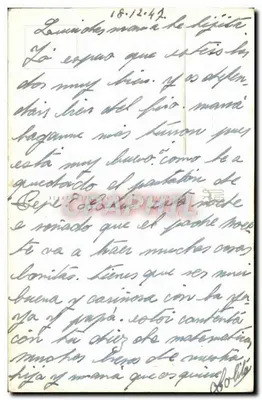 18.12.42
Queridas mamá he hijita
Yo espero que esteis las
dos muy bien. y os defen-
dais bien del frio. mamá
hagame mas turron pues
está muy bueno. como te a
quedado el pantalón de
Pepe esta noche
e soñado que el padre noel
te va a traer muchas cosas
bonitas. tienes que ser muy
buena y cariñosa con la ya
ya y papá. estoi contenta
con tu diez de matematicas
muchos besos de vuestra
hija y mamá que os quiere
Lolita